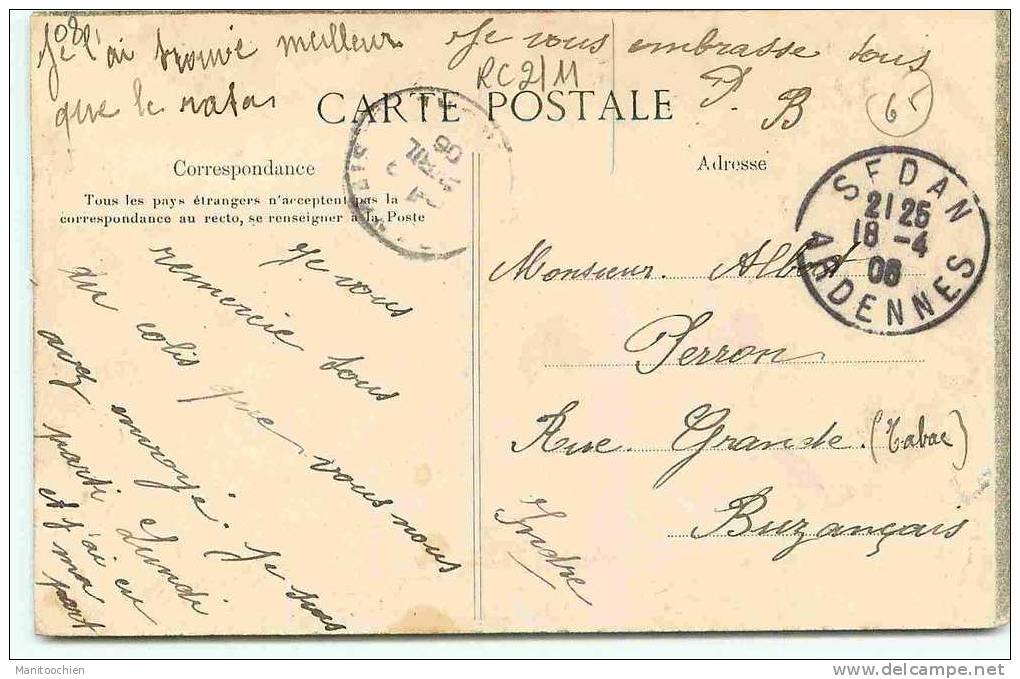 Je l'ai trouvé meilleur
que le rata.
Je vous embrasse tous
P. B
RC2/11
65
CARTE POSTALE
Correspondance
Tous les pays étrangers n'acceptent pas la
correspondance au recto, se renseigner à la Poste
Adresse
SEDAN
21 25
18 -4
08
ARDENNES
Je vous
remercie tous
du colis que vous nous
avez envoyé. Je suis
parti Lundi
et j'ai eu
ma
part
Monsieur Albert
Perron
Rue Grande (Tabac)
Buzançais
Indre
Manitoochien
www.delcampe.net